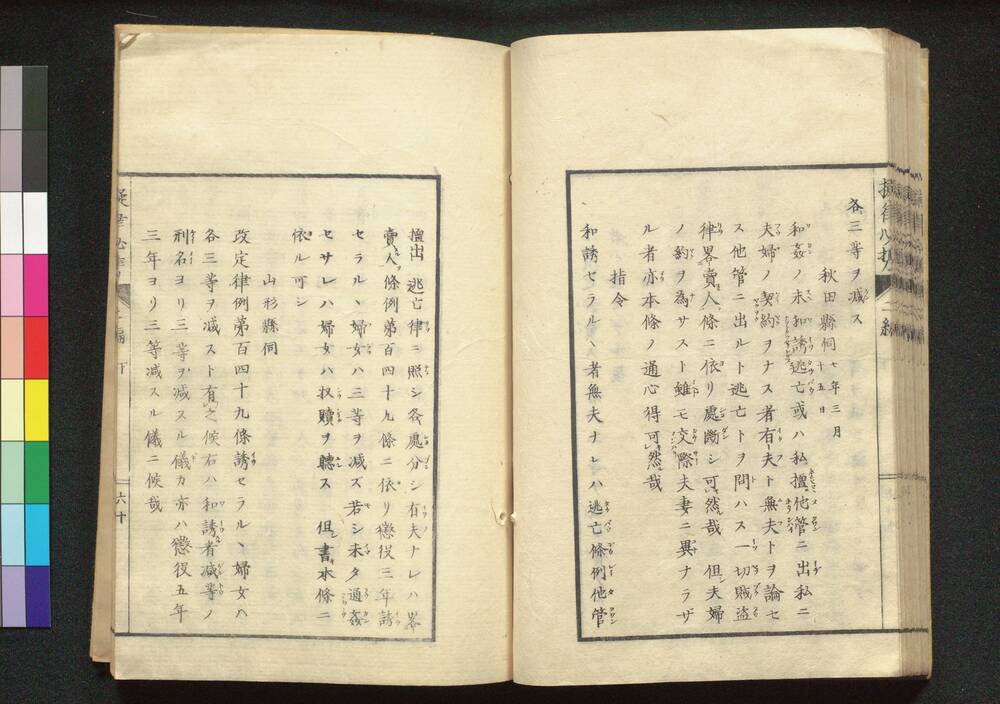 各三等ヲ減ス
秋田縣伺 七年三月十五日
和姦ノ末和誘逃亡或ハ私擅他管ニ出私ニ
夫婦ノ契約ヲナス者有夫ト無夫トヲ論セ
ス他管ニ出ルト逃亡トヲ問ハス一切賊盗
律畧賣人條ニ依リ處断シ可然哉 但夫婦
ノ約ヲ為サスト雖モ交際夫妻ニ異ナラザ
ル者亦本條ノ通心得可然哉
指令
和誘セラルヽ者無夫ナレハ逃亡條例他管
擅出 逃亡律ニ照シ各處分シ有夫ナレハ畧
賣人條例第百四十九條ニ依リ懲役三年誘
セラルヽ婦女ハ三等ヲ減ズ若シ未タ通姦
セサレハ婦女ハ收贖ヲ聴ス 但書本條ニ
依ル可シ
山形縣伺
改定律例第百四十九條誘セラルヽ婦女ハ
各三等ヲ減スト有之候右ハ和誘者減等ノ
刑名ヨリ三等ヲ減スル儀カ亦ハ懲役五年
三年ヨリ三等減スル儀ニ候哉
六十